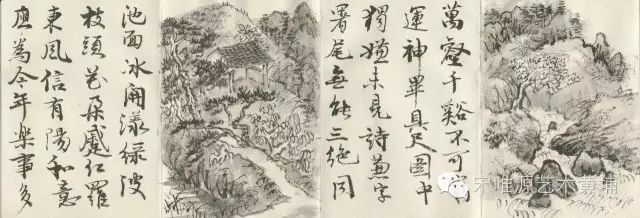 萬壑千谿不可窮
運神畢具尺圖中
獨嫌未見詩兼字
署尾無能三絕同
池面冰開漾綠波
枝頭花朵蹙紅羅
東風信有陽和意
應為今年樂事多
宋唯源艺术黄埔